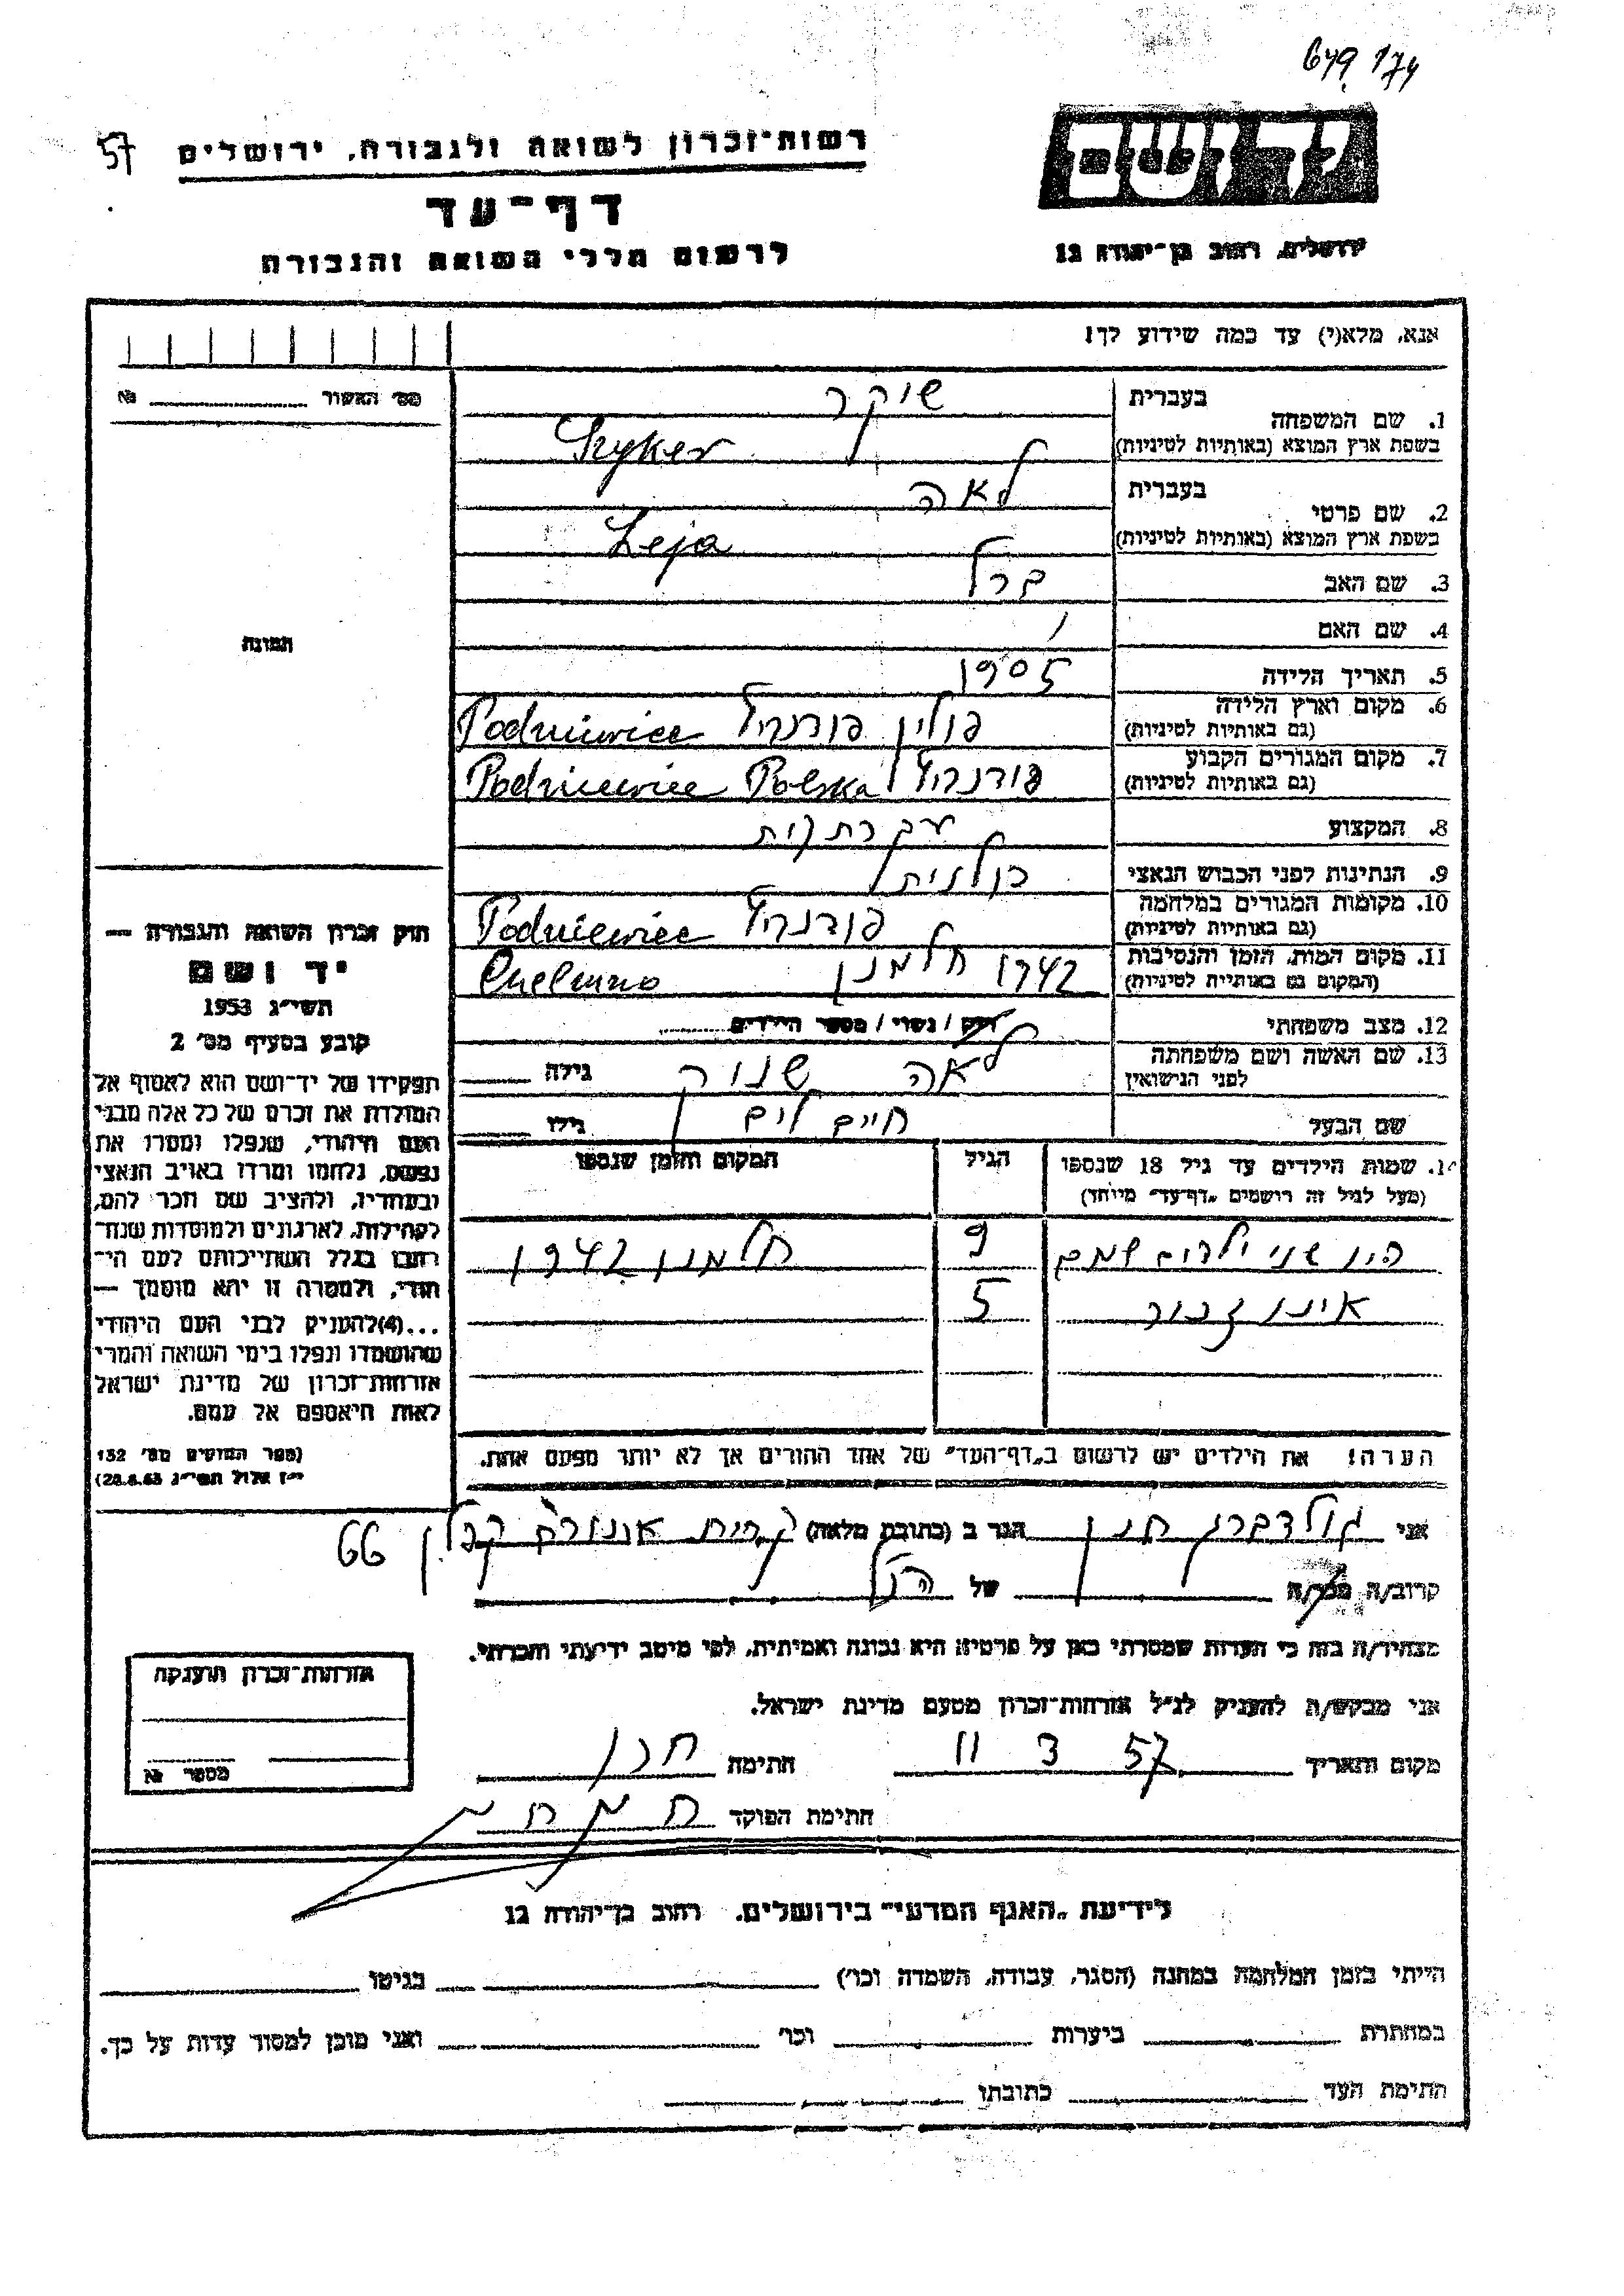 649 174
57
רשות־זכרון לשואה ולגבורה, ירושלים
דף־עד
לרשום חללי השואה והגבורה
יד ושם
ירושלים, רחוב בן־יהודה 12
אנא, מלא(י) עד כמה שידוע לך!
מס׳ האשור №
1. שם המשפחה
בעברית שוקר
בשפת ארץ המוצא (באותיות לטיניות) Szyker
2. שם פרטי
בעברית לאה
בשפת ארץ המוצא (באותיות לטיניות) Leja
3. שם האב ברל
4. שם האם
5. תאריך הלידה 1905
6. מקום וארץ הלידה (גם באותיות לטיניות) פולין Podniewice
7. מקום המגורים הקבוע (גם באותיות לטיניות) Podniewice Polska
8. המקצוע עקרת בית
9. הנתינות לפני הכבוש הנאצי פולנית
10. מקומות המגורים במלחמה (גם באותיות לטיניות) Podniewice
11. מקום המות, הזמן והנסיבות (המקום גם באותיות לטיניות) 1942 חלמנו Chelmno
12. מצב משפחתי רווק / נשוי / מספר הילדים
13. שם האשה ושם משפחתה לפני הנישואין לאה גילה
שם הבעל חיים גילו
תמונה
14. שמות הילדים עד גיל 18 שנספו הגיל המקום והזמן שנספו
(מעל לגיל זה רושמים „דף־עד״ מיוחד)
היו שני ילדים שמם 9 חלמנו 1942
אינו זכור 5
הערה! את הילדים יש לרשום ב„דף־העד״ של אחד ההורים אך לא יותר מפעם אחת.
חוק זכרון השואה והגבורה —
יד ושם
תשי״ג 1953
קובע בסעיף מס׳ 2
תפקידו של יד־ושם הוא לאסוף אל
המולדת את זכרם של כל אלה מבני
העם היהודי, שנפלו ומסרו את
נפשם, נלחמו ומרדו באויב הנאצי
ובעוזריו, ולהציב שם וזכר להם,
לקהילות, לארגונים ולמוסדות שנח־
רבו בגלל השתייכותם לעם הי־
הודי, ולמטרה זו יהא מוסמך —
...(4) להעניק לבני העם היהודי
שהושמדו ונפלו בימי השואה והמרי
אזרחות־זכרון של מדינת ישראל
לאות היאספם אל עמם.
(ספר החוקים מס׳ 132
י״ז אלול תשי״ג 28.8.53)
אני גולדברג חנן הגר ב (כתובת מלאה) קרית אונו 66
קרוב/ה מכר/ה של הנ״ל
מצהיר/ה בזה כי העדות שמסרתי כאן על פרטיה היא נכונה ואמיתית, לפי מיטב ידיעתי והכרתי.
אני מבקש/ה להעניק לנ״ל אזרחות־זכרון מטעם מדינת ישראל.
מקום ותאריך 11 3 57 חתימה חנן
חתימת הפוקד
אזרחות־זכרון הוענקה
מספר №
לידיעת „האגף המדעי״ בירושלים, רחוב בן־יהודה 12
הייתי בזמן המלחמה במחנה (הסגר, עבודה, השמדה וכו׳) בגיטו
במחתרת ביערות וכו׳ ואני מוכן למסור עדות על כך.
חתימת העד כתובתו